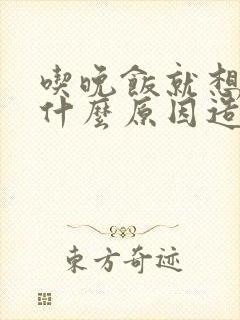 喫晚飯就想
什麼原因造
東方奇迹